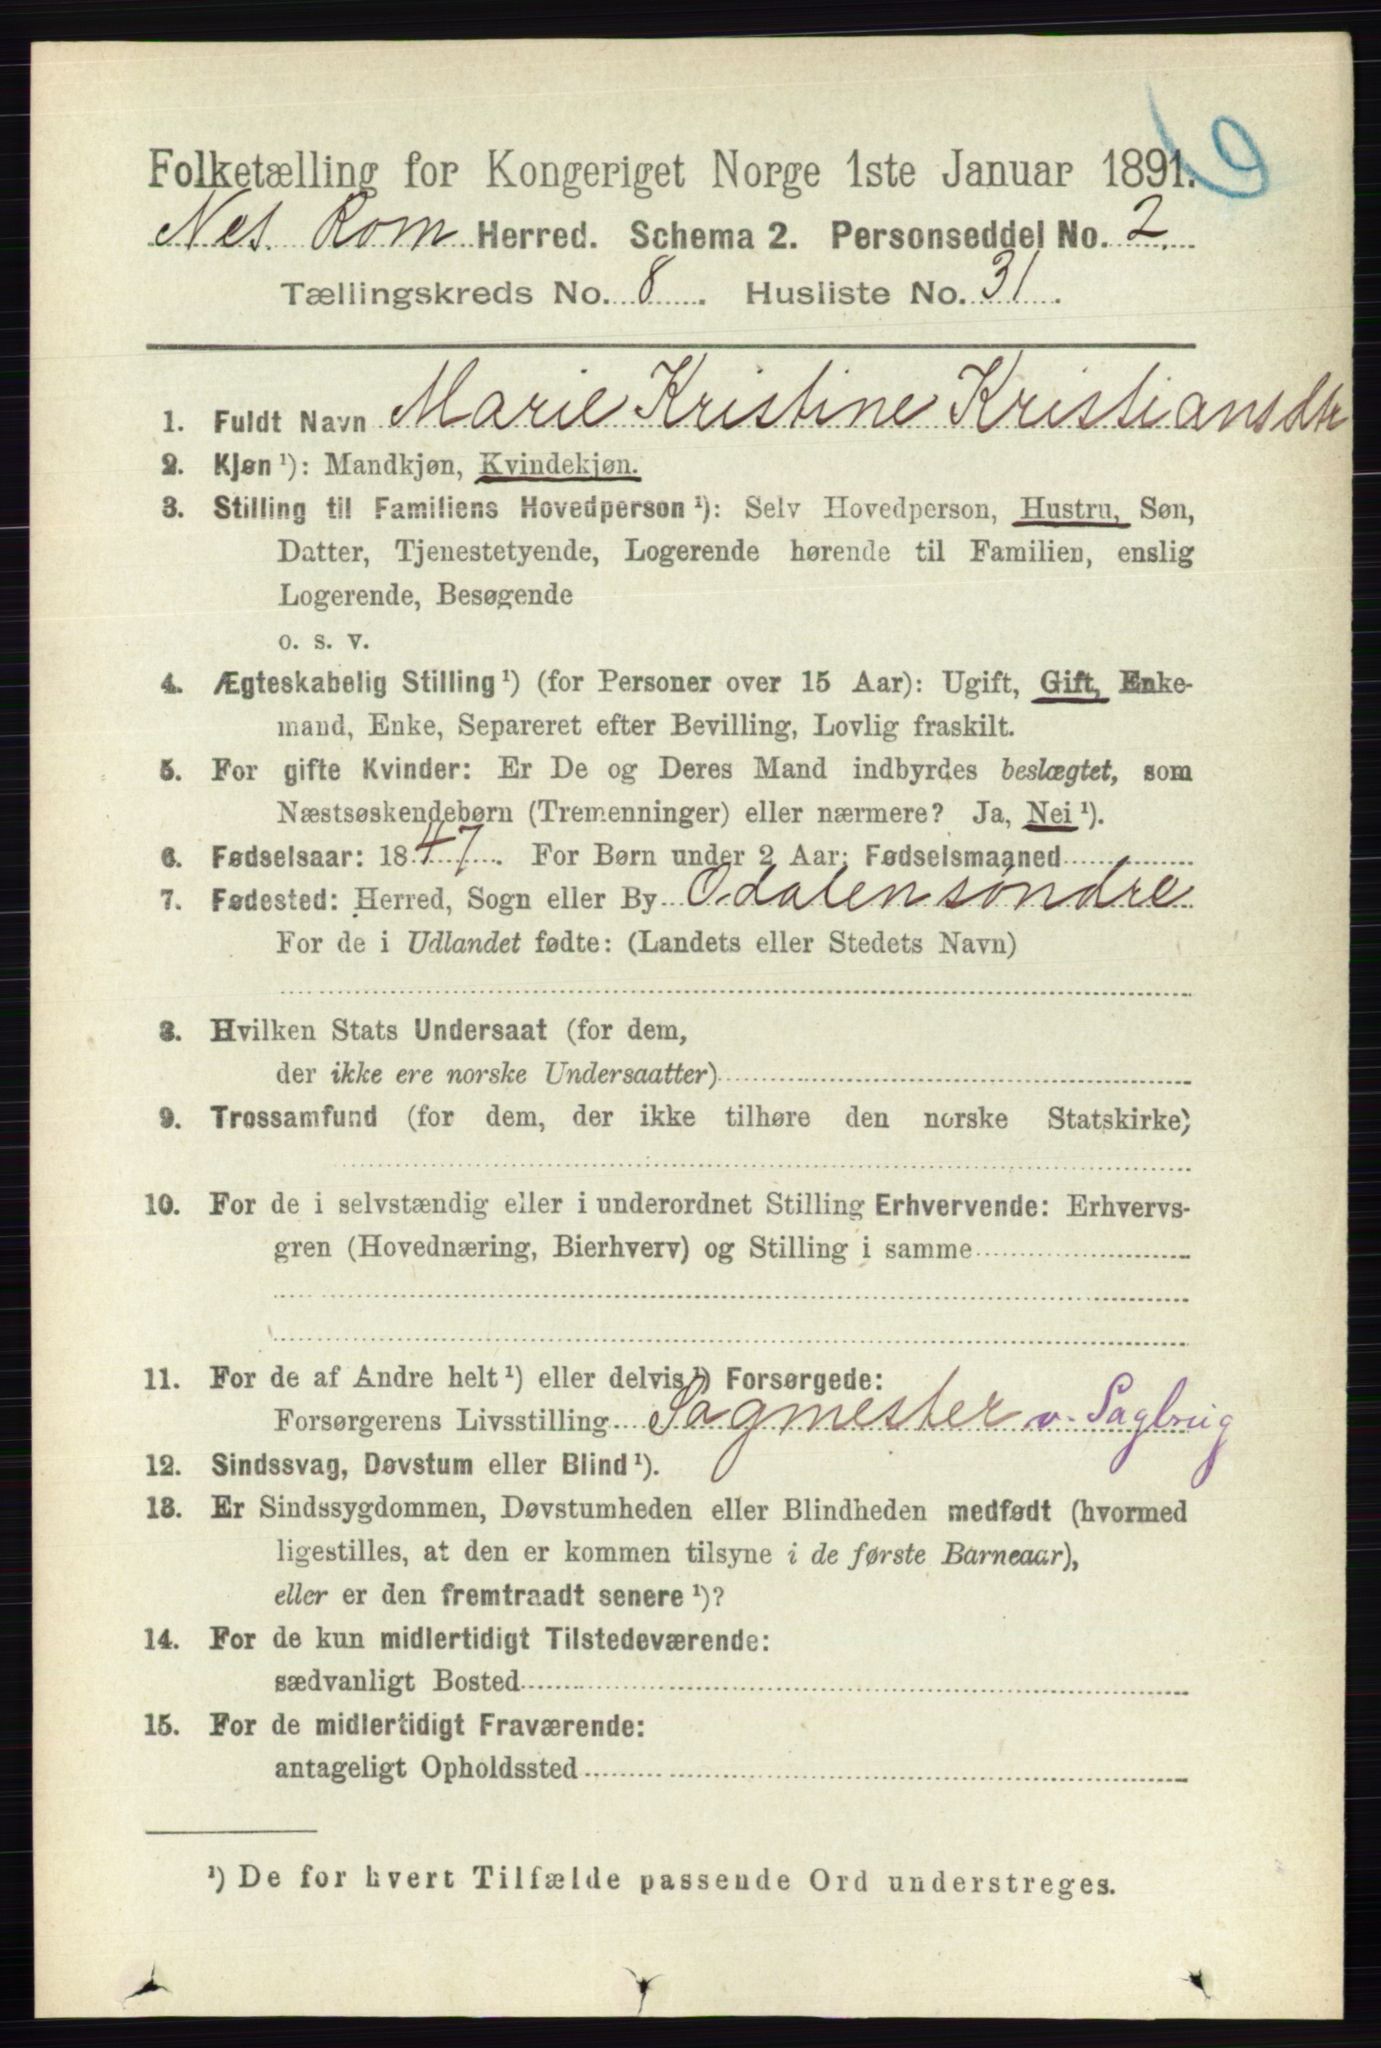 Folketælling for Kongeriget Norge 1ste Januar 1891.
Nes Rom Herred. Schema 2. Personseddel No. 2
Tællingskreds No. 8. Husliste No. 31.
1. Fuldt Navn Marie Kristine Kristiansdtr
2. Kjøn ¹): Mandkjøn, Kvindekjøn.
3. Stilling til Familiens Hovedperson ¹): Selv Hovedperson, Hustru, Søn,
Datter, Tjenestetyende, Logerende hørende til Familien, enslig
Logerende, Besøgende
o. s. v.
4. Ægteskabelig Stilling ¹) (for Personer over 15 Aar): Ugift, Gift, Enke-
mand, Enke, Separeret efter Bevilling, Lovlig fraskilt.
5. For gifte Kvinder: Er De og Deres Mand indbyrdes beslægtet, som
Næstsøskendebørn (Tremenninger) eller nærmere? Ja, Nei ¹).
6. Fødselsaar: 1847. For Børn under 2 Aar: Fødselsmaaned
7. Fødested: Herred, Sogn eller By Odalen søndre
For de i Udlandet fødte: (Landets eller Stedets Navn)
8. Hvilken Stats Undersaat (for dem,
der ikke ere norske Undersaatter)
9. Trossamfund (for dem, der ikke tilhøre den norske Statskirke)
10. For de i selvstændig eller i underordnet Stilling Erhvervende: Erhvervs-
gren (Hovednæring, Bierhverv) og Stilling i samme
11. For de af Andre helt ¹) eller delvis ¹) Forsørgede:
Forsørgerens Livsstilling Sagmester v. Sagbrug
12. Sindssvag, Døvstum eller Blind ¹).
13. Er Sindssygdommen, Døvstumheden eller Blindheden medfødt (hvormed
ligestilles, at den er kommen tilsyne i de første Barneaar),
eller er den fremtraadt senere ¹)?
14. For de kun midlertidigt Tilstedeværende:
sædvanligt Bosted
15. For de midlertidigt Fraværende:
antageligt Opholdssted
¹) De for hvert Tilfælde passende Ord understreges.